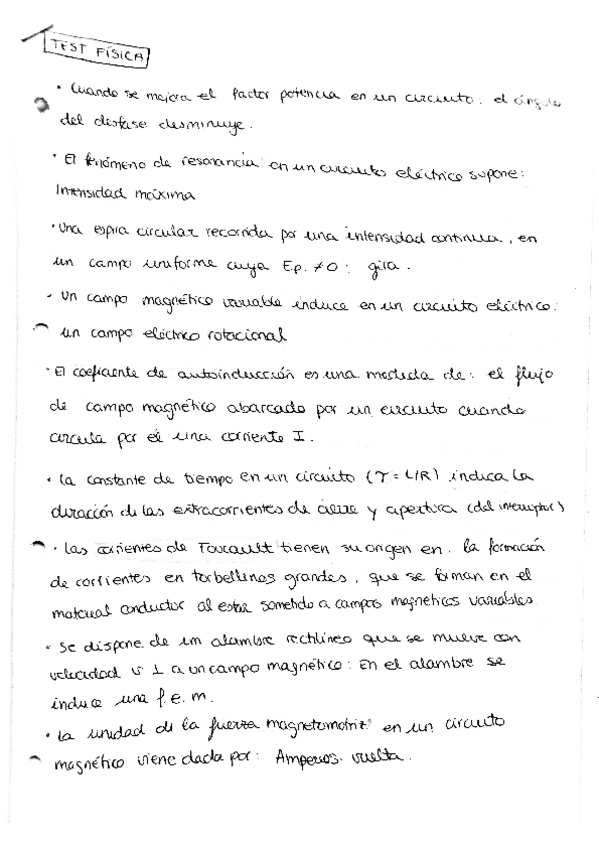 TEST FÍSICA
· Cuando se mejora el factor potencia en un circuito: el ángulo
del desfase disminuye.
· El fenómeno de resonancia en un circuito eléctrico supone:
Intensidad máxima
· Una espira circular recorrida por una intensidad continua, en
un campo uniforme cuya Ep. ≠ 0: gira.
- Un campo magnético variable induce en un circuito eléctrico:
un campo eléctrico rotacional
· El coeficiente de autoinducción es una medida de: el flujo
de campo magnético abarcado por un circuito cuando
circula por él una corriente I.
· La constante de tiempo en un circuito (τ = L/R) indica la
duración de las extracorrientes de cierre y apertura (del interruptor)
· Las corrientes de Foucault tienen su origen en: la formación
de corrientes en torbellinos grandes, que se forman en el
material conductor al estar sometido a campos magnéticos variables.
· Se dispone de un alambre rectilíneo que se mueve con
velocidad v ⊥ a un campo magnético: En el alambre se
induce una f.e.m.
· La unidad de la fuerza magnetomotriz en un circuito
magnético viene dada por: Amperios. vuelta.